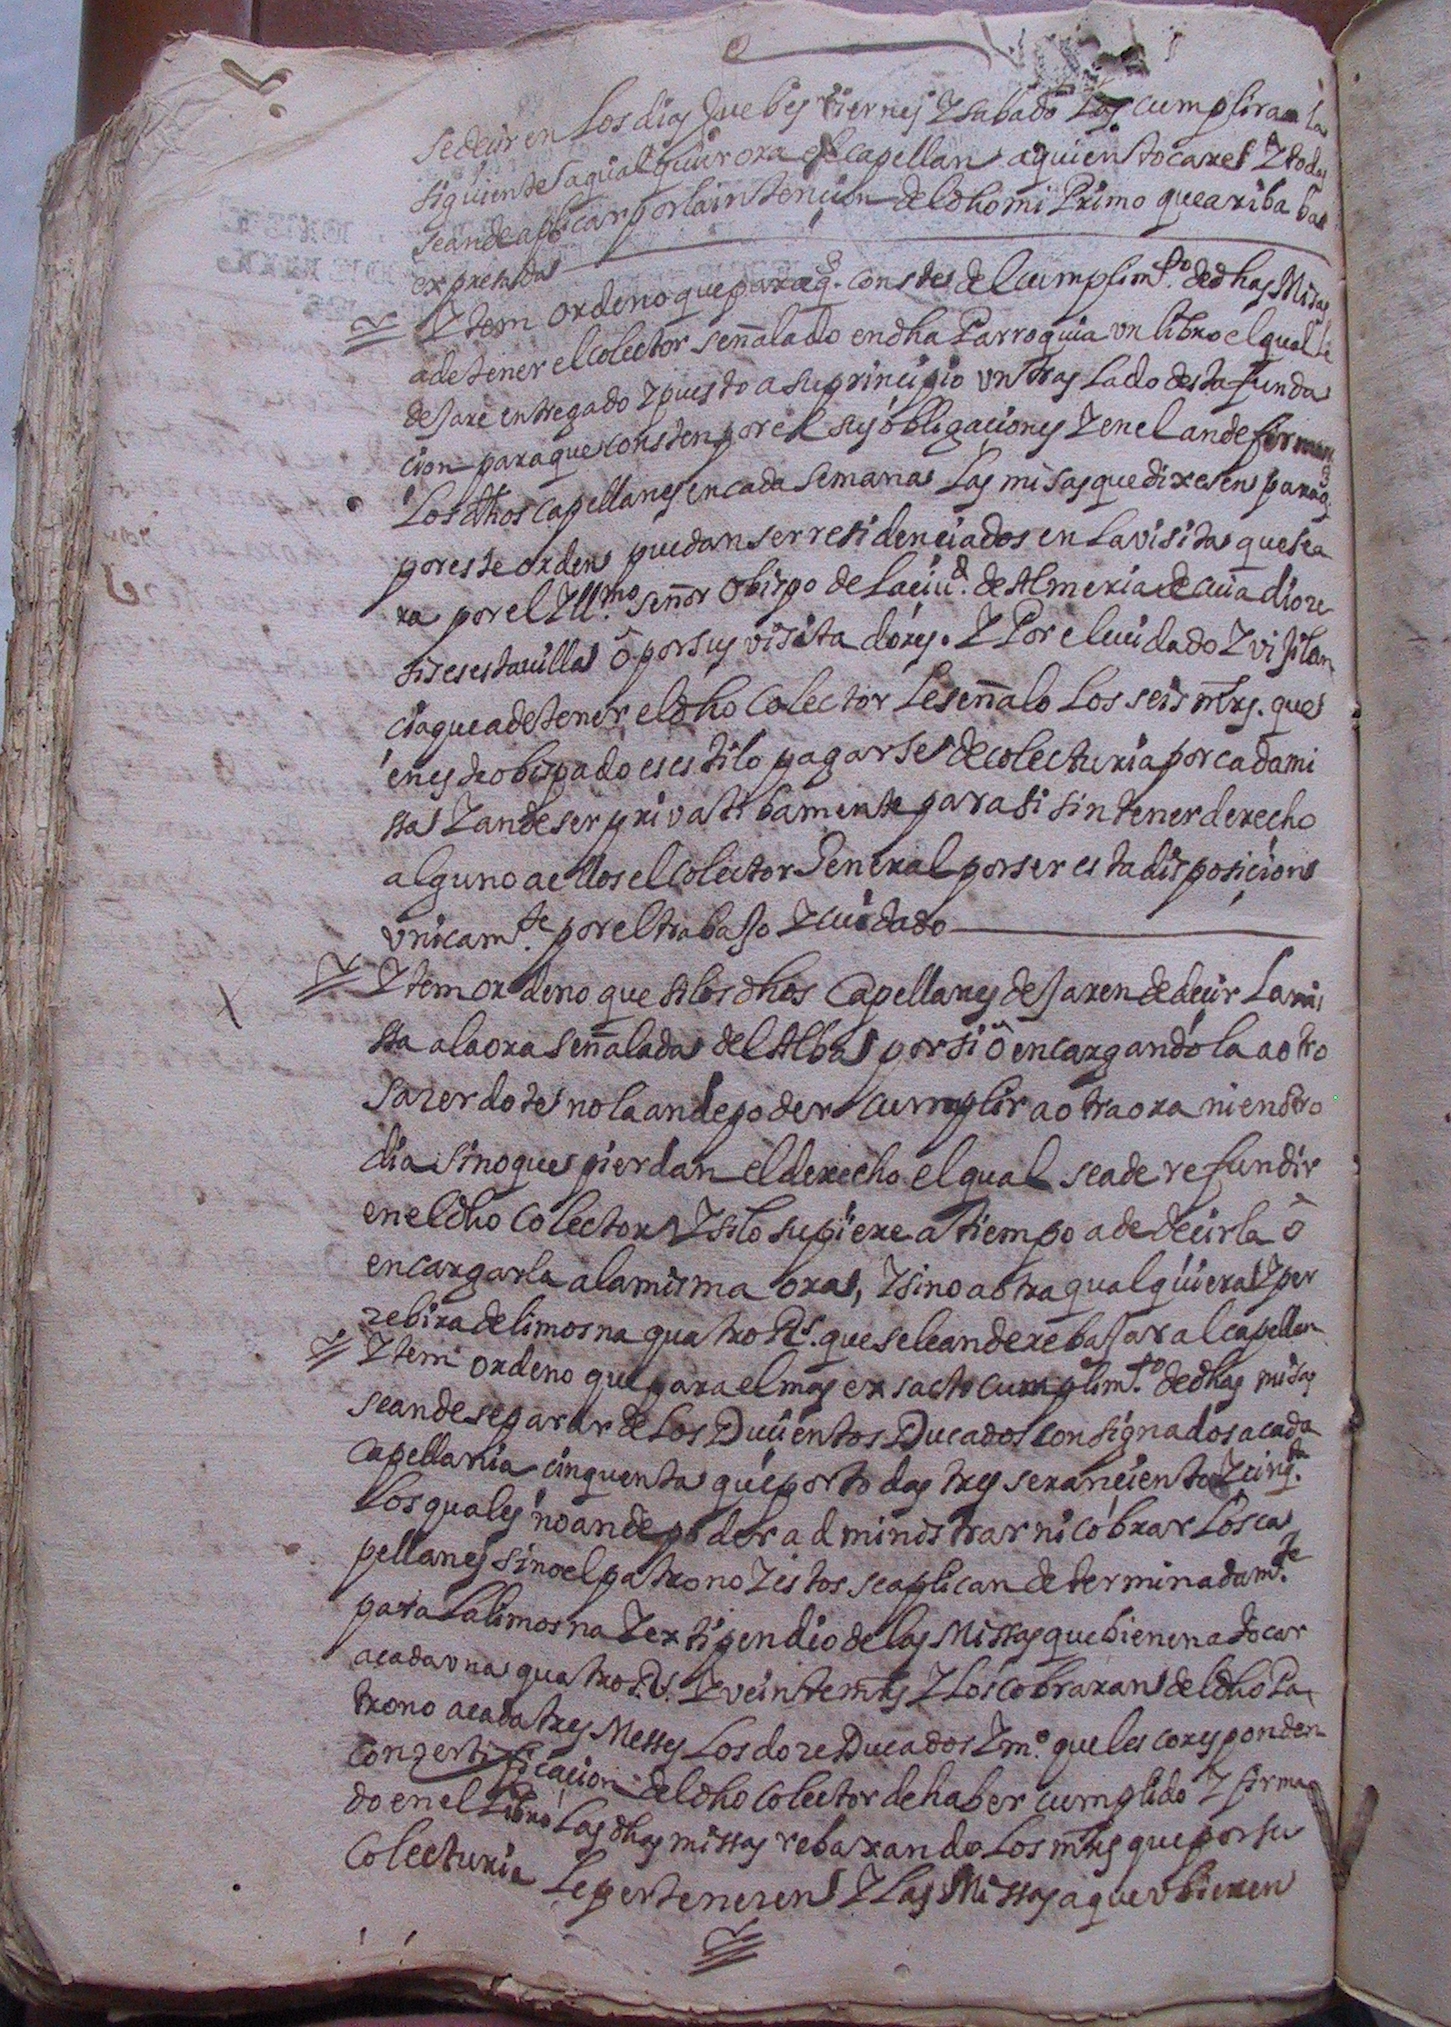 se decir en los dias Juebes viernes y sabado las cumpliran la
siguientes a qualquier ora el capellan a quien tocare y todas
se an de aplicar por la intencion del dho mi Primo que ariba ba
expresada
Ytem ordeno que para q. conste del cumplim.to de dhas Misas
a de tener el colector señalado en dha Parroquia vn libro el qual le
dejare entregado y puesto a su principio vn traslado desta funda
cion para que consten por el sus obligaciones y en el an de firmar
los dhos capellanes en cada semana las misas que dixesen para q.
por este orden puedan ser residenciados en la visita que se a
ra por el Yll.mo señor obispo de la ciu.d de Almeria de cuia dioze
sis es esta uilla ô por sus visitadores. Y Por el cuidado y vijilan
cia que a de tener el dho colector le señalo los seis mrs. que
en este obispado es estilo pagarse de colecturia por cada mi
ssa y an de ser privatibamente para si sin tener derecho
alguno a ellos el colector Jeneral por ser esta disposicion
vnicam.te por el trabajo y cuidado
Ytem ordeno que si los dhos capellanes dejaren de decir la mi
ssa a la ora señalada del Alba por si ô encargandola a otro
sazerdote no la an de poder cumplir a otra ora ni en otro
dia sino que pierdan el derecho el qual se a de refundir
en el dho colector y si lo supiere a tiempo a de decirla ô
encargarla a la misma ora, y sino a otra qualquiera y per
zebira de limosna quatro Rs. que se le an de rebajar al capellan
Ytem ordeno que para el mas exsacto cumplim.to de dhas misas
se an de separar de los Ducientos Ducados consignados a cada
capellania cinquenta que por todas tres seran ciento y cinq.ta
los quales no an de poder administrar ni cobrar los ca
pellanes sino el patrono y estos se aplican determinadam.te
para la limosna y extipendio de las Missas que bienen a tocar
a cada vna quatro Rs. y veinte mrs y los cobraran del dho Pa
trono a cada tres Messes los doze Ducados y m.o que les coresponden
con zertificacion del dho colector de haber cumplido y firma
do en el Libro las dhas missas rebaxando los mrs que por su
colecturia le pertenezen y las Missas a que vbieren